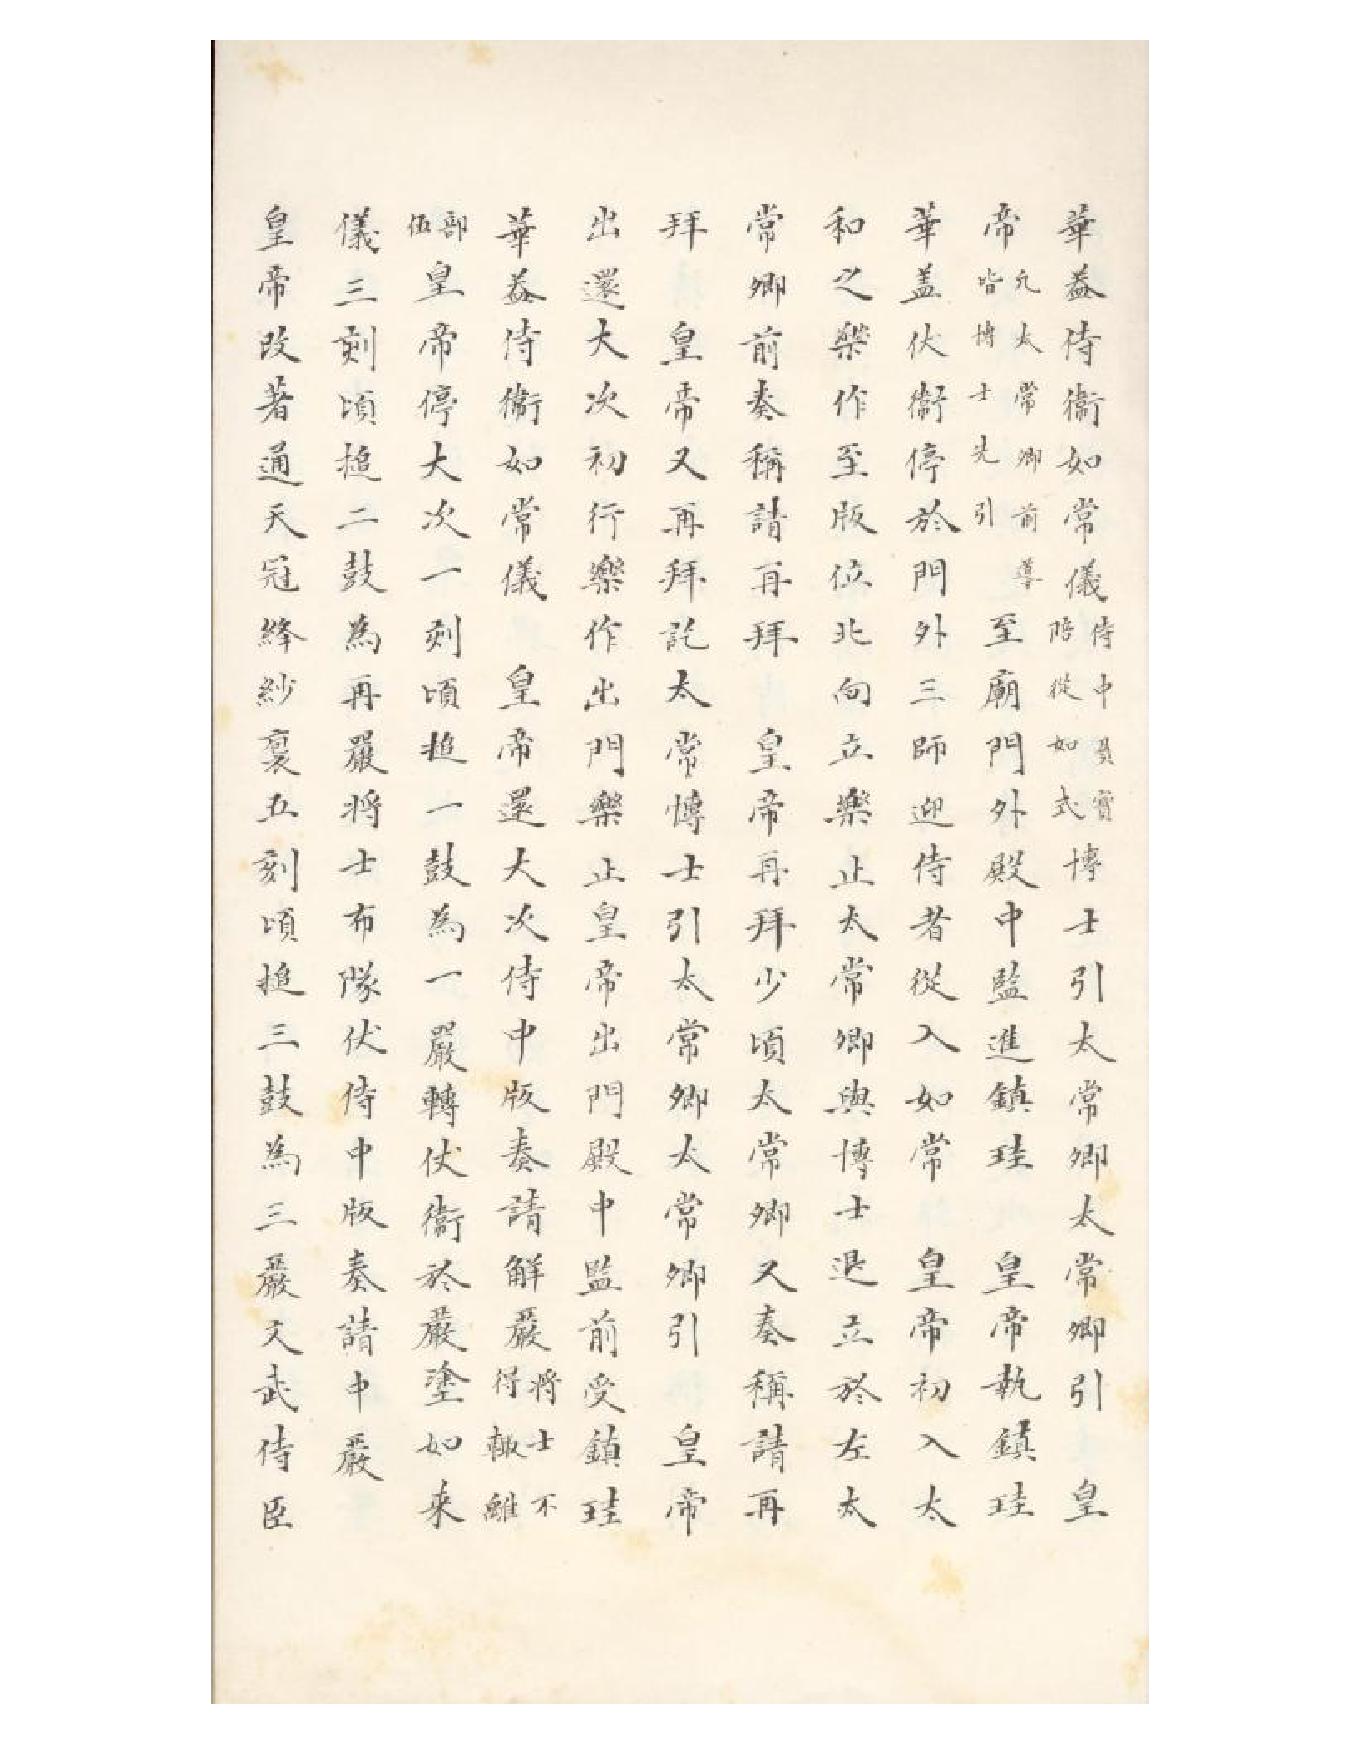 華葢侍衞如常儀侍中負寳陪從如式博士引太常卿太常卿引　皇
帝凢太常卿前導皆博士先引至廟門外殿中監進鎮珪　皇帝執鎮珪
華盖伏衞停於門外三師迎侍者從入如常　皇帝初入太
和之樂作至版位北向立樂止太常卿與博士退立於左太
常卿前奏稱請再拜　皇帝再拜少頃太常卿又奏稱請再
拜　皇帝又再拜訖太常愽士引太常卿太常卿引　皇帝
出還大次初行樂作出門樂止皇帝出門殿中監前受鎮珪
華葢侍衞如常儀　皇帝還大次侍中版奏請解嚴將士不得輙離
部伍皇帝停大次一刻頃搥一鼓為一嚴轉仗衞於嚴塗如来
儀三刻頃搥二鼓為再嚴将士布隊伏侍中版奏請中嚴
皇帝改著通天冠絳紗裏五刻頃搥三鼓為三嚴文武侍臣